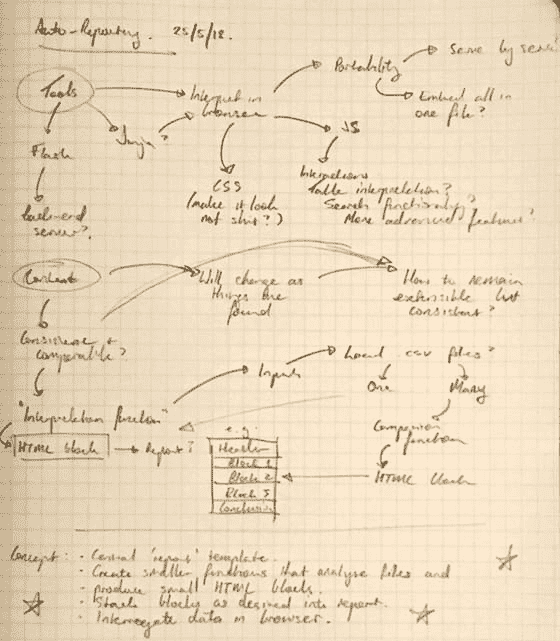 Auto-Reporting. 25/5/18.
Tools
Interpret in browser
Portability
Serve by
Embed all in one file?
Jinja?
JS
Flask
CSS
(make it look not shit?)
Interactions
Table interpretation?
Search functionality?
More advanced features?
back-end server?
Content
Will change as things are found
How to remain extensible but consistent?
Consistent + comparable?
Inputs
Local csv files?
One
Many
"Interpretation function"
Comparison function
HTML block
Report?
e.g.
Header
Block 1
Block 2
Block 3
Conclusion
HTML block
Concept:
- Central 'report' template.
- Create smaller functions that analyse files and
- produce small HTML blocks.
- Stack blocks as desired into report.
- Interrogate data in browser.